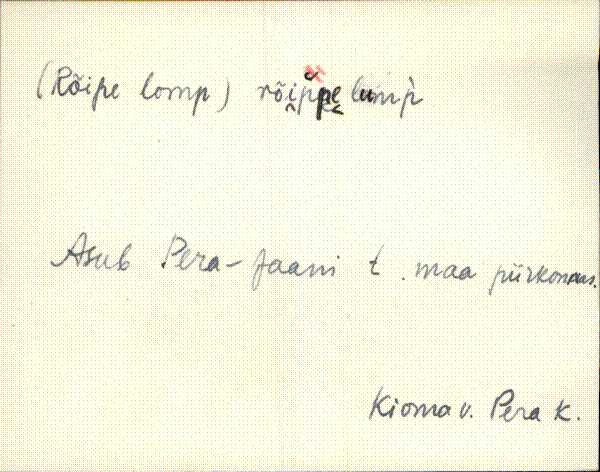 (Rõipe lomp) rõi̯ppe lump̀
Asub Pera-Jaani t. maa piirkonnas.
Kioma v. Pera k.